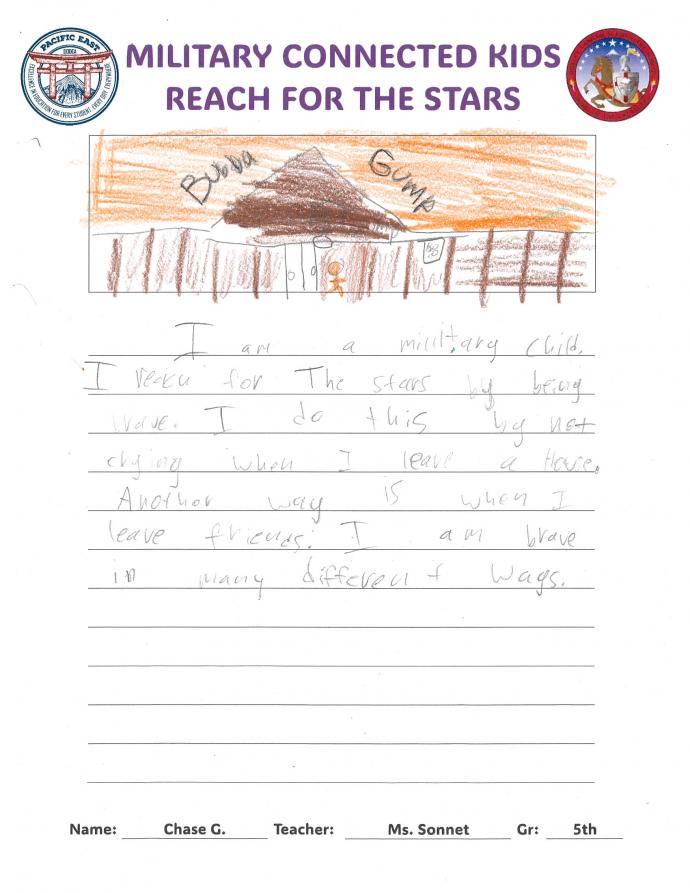 PACIFIC EAST
DODEA
EXCELLENCE IN EDUCATION FOR EVERY STUDENT, EVERY DAY, EVERYWHERE
MILITARY CONNECTED KIDS
REACH FOR THE STARS
Bubba Gump
I am a millitary child.
I reach for The stars by being
brave. I do this by not
crying when I leave a House.
Another way is when I
leave friends. I am brave
in many different ways.
Name: Chase G. Teacher: Ms. Sonnet Gr: 5th